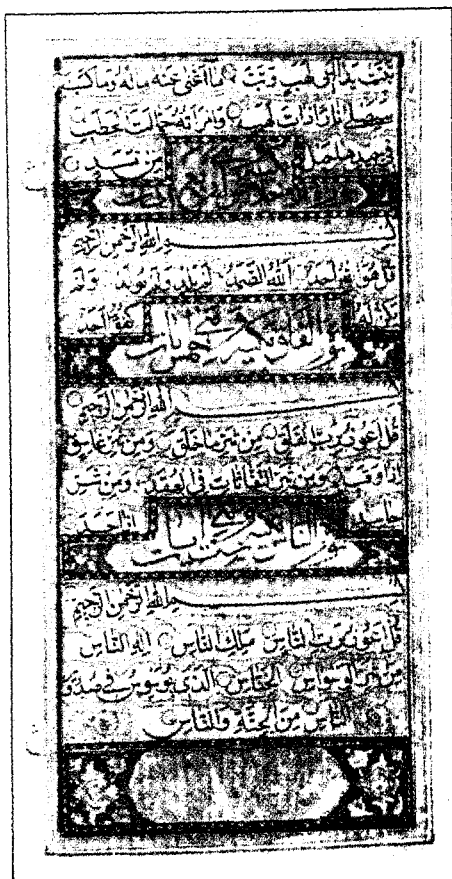 تبت يدا ابى لهب وتب ما اغنى عنه ماله وما كسب
سيصلى نارا ذات لهب وامراته حمالة الحطب
فى جيدها حبل من مسد
بسم الله الرحمن الرحيم
قل هو الله احد الله الصمد لم يلد ولم يولد ولم
يكن له كفوا احد
سورة الفلق خمس ايات
بسم الله الرحمن الرحيم
قل اعوذ برب الفلق من شر ما خلق ومن شر غاسق
اذا وقب ومن شر النفاثات فى العقد ومن شر
حاسد اذا حسد
سورة الناس ست ايات
بسم الله الرحمن الرحيم
قل اعوذ برب الناس ملك الناس اله الناس
من شر الوسواس الخناس الذى يوسوس فى صدور
الناس من الجنة والناس